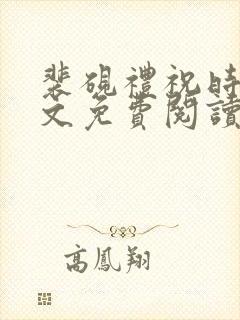 裴硯禮祝時
文免費閱讀
高鳳翔